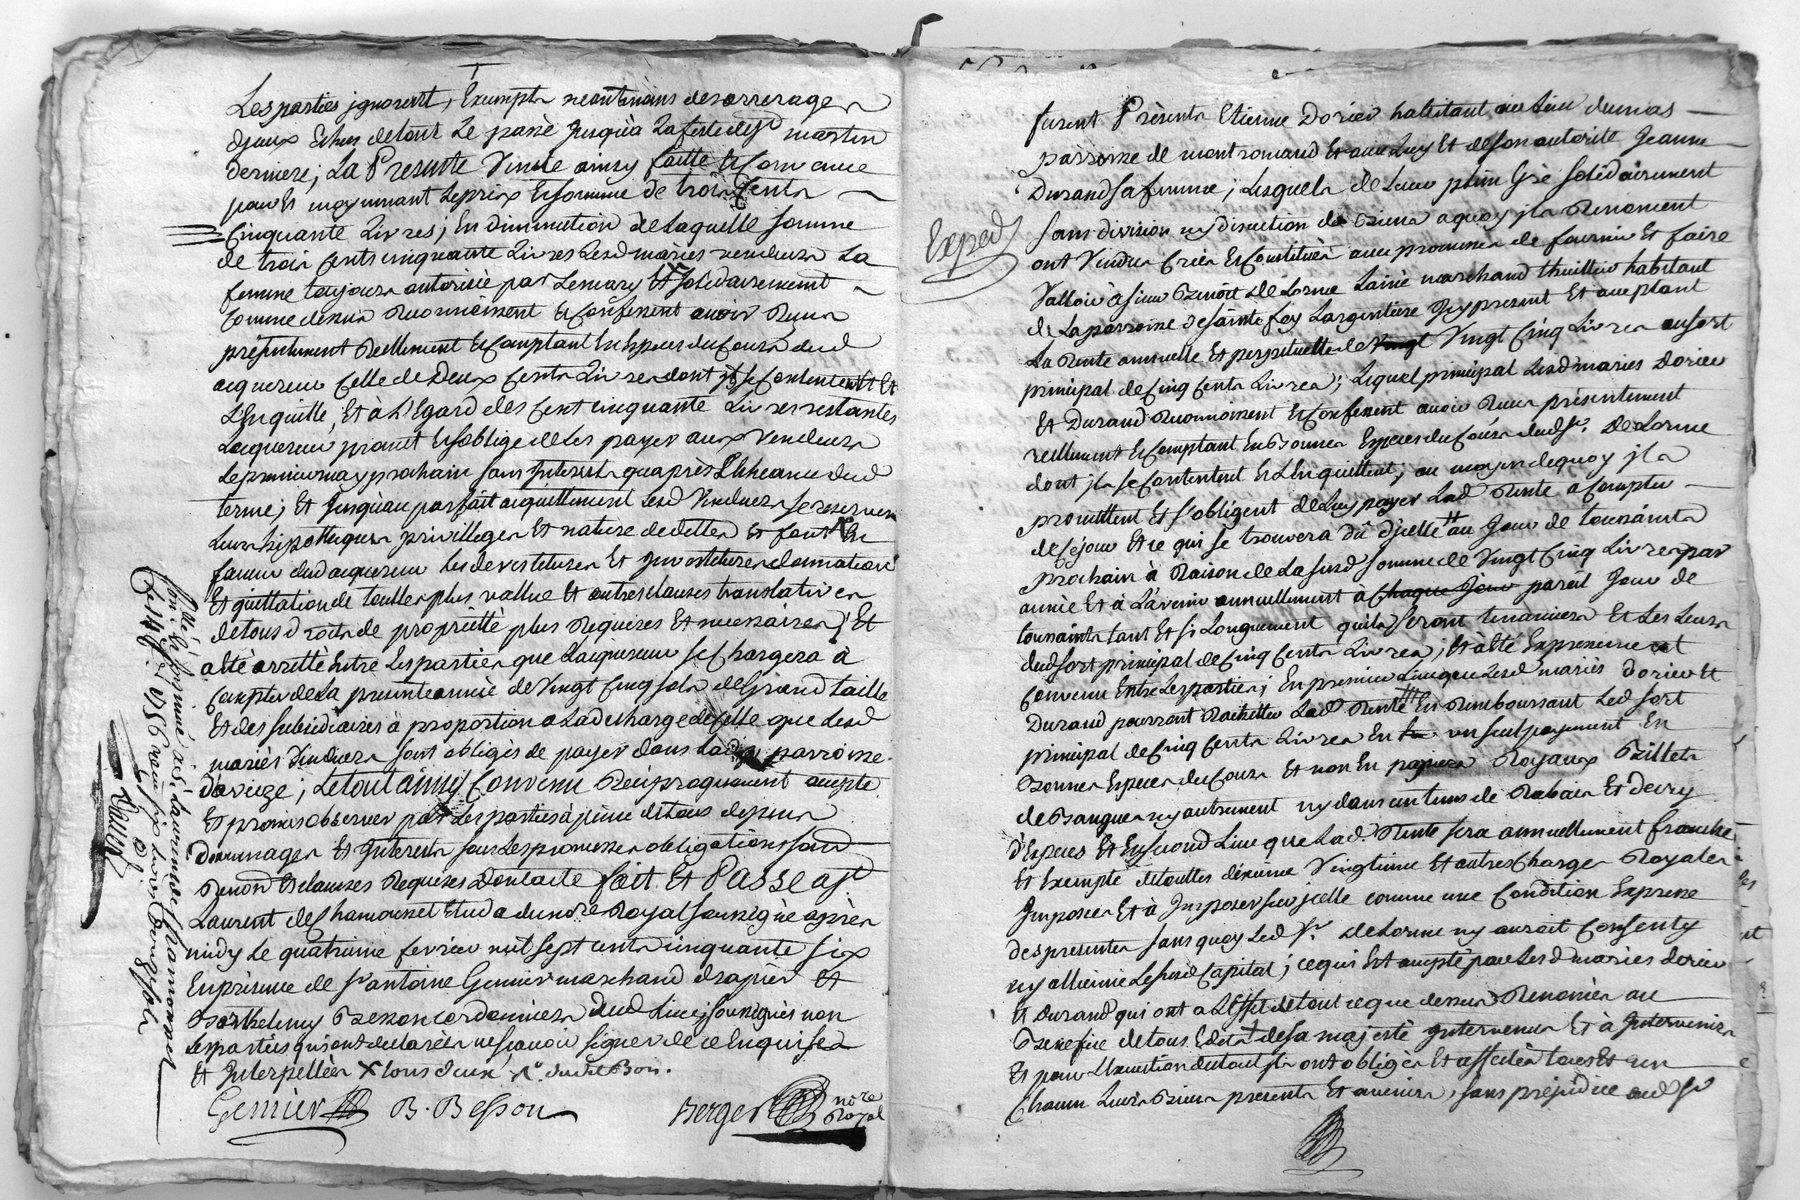 Les parties ignorent, Exempte neantmoins des arrerages
d'yceux Echus de tout Le passé jusqu'a La feste de st martin
derniere; La Presente Vente ainsy faitte & Convenue
pour Et moyennant Le prix Et somme de trois Cents
Cinquante Livres; En diminution de Laquelle somme
de trois Cents cinquante Livres Lesd mariés vendeurs La
femme toujours autorisée par Le mary Et solidairement
Comme dessus Reconnoissent & Confessent avoir Reçu
présentement Réellement & Comptant En Espèces du Cours dud
acquereur Celle de Deux Cents Livres dont ils se Contentent Et
L'Enquitte, Et à L'Egard des Cent cinquante Livres restantes
L'acquereur promet & s'oblige de Les payer aux Vendeurs
Le premier may prochain sans Interests qu'après L'Echeance dud
terme; Et jusqu'au parfait acquittement Lesd Vendeurs se reservent
Leurs hipotheques privilleges Et nature de dettes Et font En
faveur dud acquereur Les devestitures Et Investitures donnation
Et quittation de touttes plus vallue Et autres clauses translatives
de tous droits de propriétté plus Requises Et necessaires; Et
a Eté arretté Entre Les parties que L'acquereur se Chargera à
Compter de La presente année de Vingt Cinq sols de Grand taille
Et des subsidiaires à proportion a La decharge de Celle que Lesd
mariés Vendeurs sont obligés de payer dans Lad parroisse
d'aveize, Le tout ainsy Convenu Réciproquement accepté
Et promis observer par Les parties à peine de tous depens
dommages Et Interests sous Les promesses obligations sand
Renond & clauses Requises Dont acte fait Et Passé a st
Laurent de Chamousset Etude du nore Royal soussigné après
midy Le quatrieme fevrier mil sept cents cinquante six
En présence de sr antoine Genier marchand drapier Et
Barthelemy Besson cordonnier dud Lieu soussignés non
Les parties qui ont declaré ne sçavoir signer de ce Enquises
Et Interpellées X tous deux
Genier B. Besson Berger nore Royal
Conlé & insinué à st Laurent de Chamousset
Le 14e fer 1756 Reçu six Livres
Exped
furent Présents Etienne Dorier habitant au Lieu du mas
parroisse de montromand Et avec Luy Et de son autorité Jeanne
Durand sa femme; Lesquels de Leur plein Gré solidairement
sans division ny discution de Biens a quoy ils Renoncent
ont Vendu Créé & Constitué avec promesse de fournir Et faire
Valloir à sieur Benoit De Lorme L'ainé marchand thuillier habitant
de La parroisse de sainte foy L'argentiere Icy present Et acceptant
La Rente annuelle Et perpetuelle de vingt Vingt Cinq Livres au sort
principal de Cinq Cents Livres; Lequel principal Lesd mariés Dorier
Et Durand Reconnoissent & Confessent avoir Reçu présentement
réellement & Comptant En Bonnes Especes du Cours dud sr. De Lorme
dont ils se Contentent & L'Enquittent, au moyen de quoy ils
promettent Et s'obligent de Luy payer Lad Rente a Compter
de Ce jour Et ce qui se trouvera dû d'ycelle au Jour de toussaints
prochain à Raison de La susd somme de Vingt Cinq Livres par
année Et à L'avenir annuellement a chaque Jour pareil Jour de
toussaints tant Et si Longuement qu'ils seront tenanciers Et Les Leurs
dud sort principal de Cinq Cents Livres; Et a Eté Expressement
Convenu Entre Les parties; En premier Lieu que Lesd mariés Dorier Et
Durand pourront Rachetter Lad Rente En Remboursant Led sort
principal de Cinq Cents Livres En un seul payement En
Bonnes Especes du Cours Et non En papiers Royaux Billets
de Banque ny autrement ny dans un tems de Rabais Et decry
d'Espèces Et En second Lieu que Lad. Rente sera annuellement franche
Et Exempte de touttes dixieme Vingtieme Et autres Charges Royales
Imposées Et à Imposer sur ycelle comme une Condition Expresse
des presentes sans quoy Led sr. de Lorme n'y auroit Consenty
ny alliené Le susd Capital; ce qui Est accepté par Lesd mariés dorier
Et Durand qui ont a L'effet de tout ce que dessus Renoncés au
Benefice de tous Edits de sa majesté Intervenus Et à Intervenir
Et pour L'Execution du tout ils ont obligés Et affectés tous Et un
Chacun Leurs Biens presents Et avenirs, sans préjudice aud sr